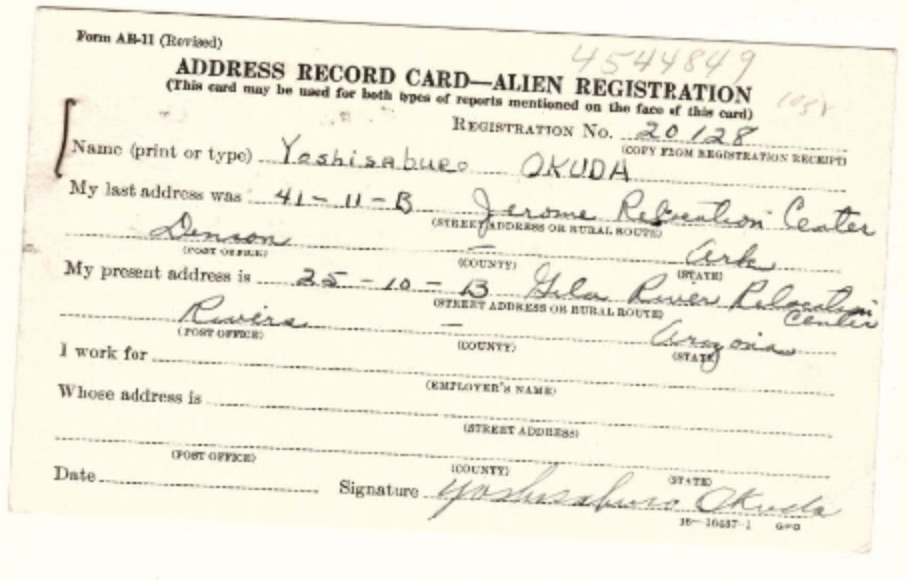 Form AR-11 (Revised)
4544849
ADDRESS RECORD CARD—ALIEN REGISTRATION
(This card may be used for both types of reports mentioned on the face of this card)
REGISTRATION No. 20128
(COPY FROM REGISTRATION RECEIPT)
Name (print or type) Yoshisaburo OKUDA
My last address was 41-11-B Jerome Relocation Center
(STREET ADDRESS OR RURAL ROUTE)
Denson — Ark
(POST OFFICE) (COUNTY) (STATE)
My present address is 25-10-B Gila River Relocation Center
(STREET ADDRESS OR RURAL ROUTE)
Rivers — Arizona
(POST OFFICE) (COUNTY) (STATE)
I work for
(EMPLOYER'S NAME)
Whose address is
(STREET ADDRESS)
(POST OFFICE) (COUNTY) (STATE)
Date Signature Yoshisaburo Okuda
16—16437-1 GPO